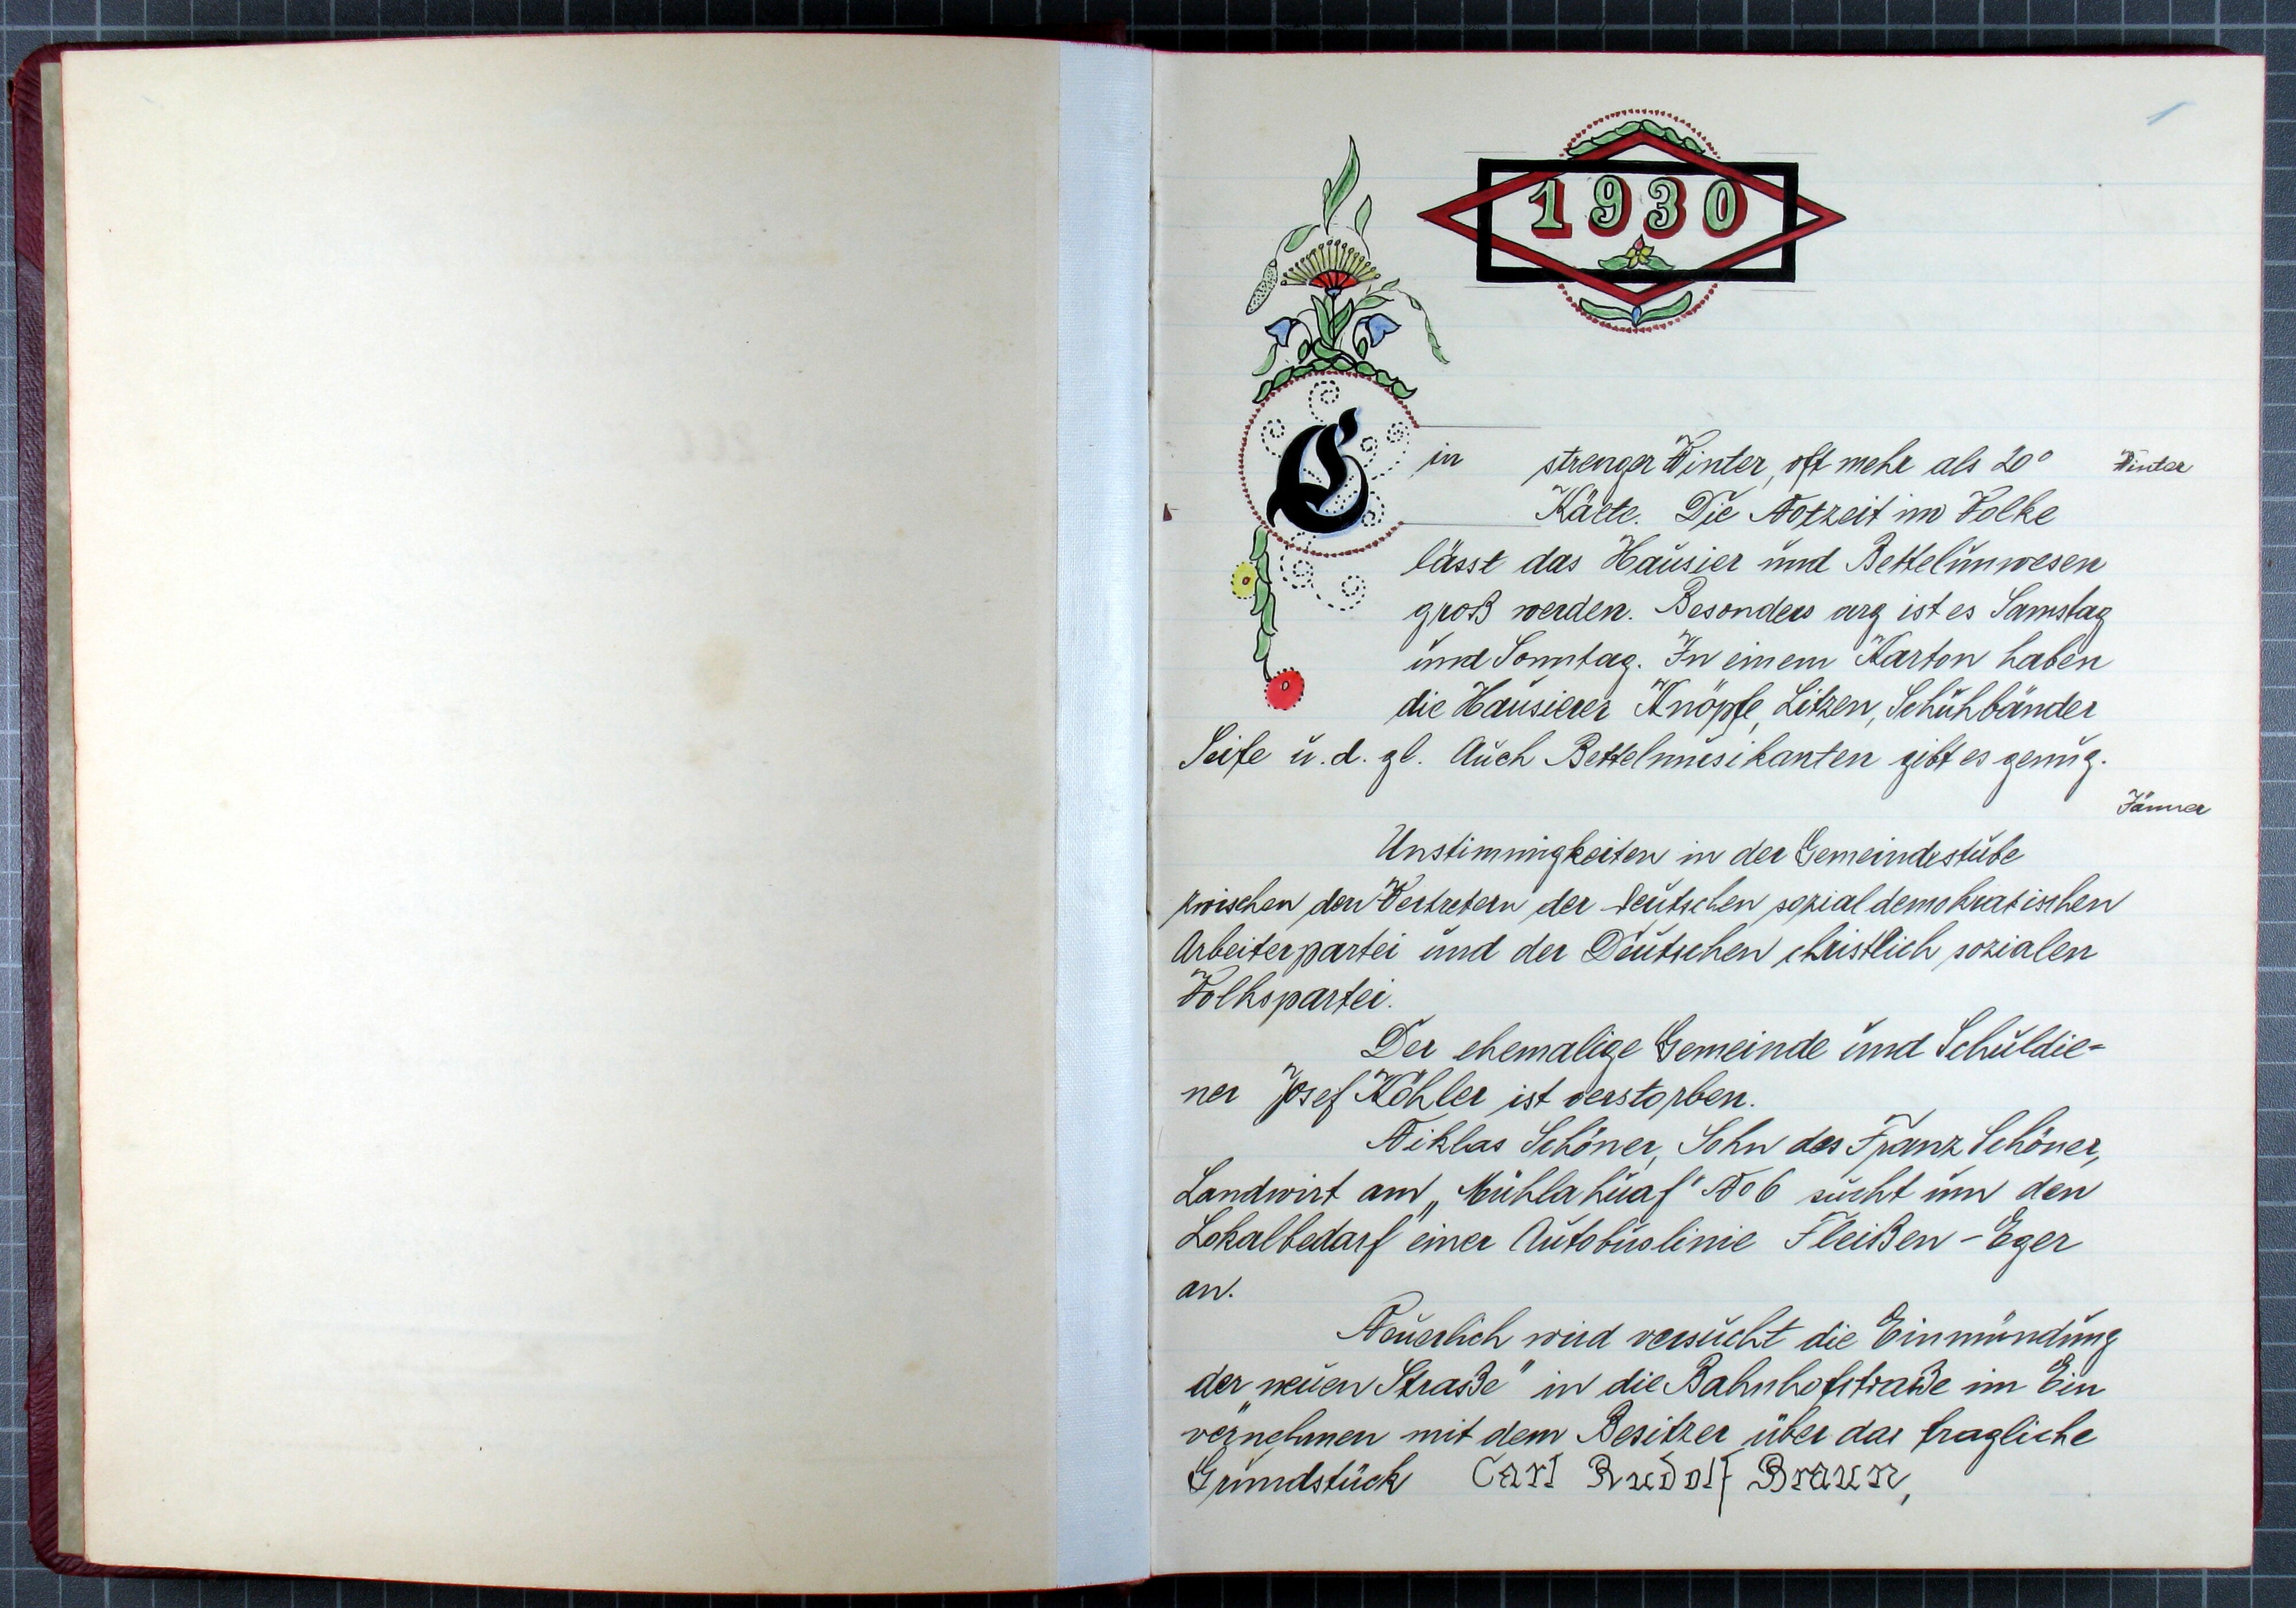 1
1930
Ein strenger Winter, oft mehr als 20°
Winter
Kälte. Die Notzeit im Volke
lässt das Hausier und Bettelunwesen
groß werden. Besonders arg ist es Samstag
und Sonntag. In einem Karton haben
die Hausierer Knöpfe, Litzen, Schuhbänder
Seife u. d. gl. Auch Bettelmusikanten gibt es genug.
Jänner
Unstimmigkeiten in der Gemeindestube
zwischen den Vertretern der deutschen sozialdemokratischen
Arbeiterpartei und der Deutschen christlich sozialen
Volkspartei.
Der ehemalige Gemeinde und Schuldie=
ner Josef Köhler ist verstorben.
Niklas Schöner, Sohn des Franz Schöner,
Landwirt am „Mühlahuaf" No 6 sucht um den
Lokalbedarf einer Autobuslinie Fleißen - Eger
an.
Neuerlich wird versucht die Einmündung
der „neuen Straße" in die Bahnhofstraße im Ein
vernehmen mit dem Besitzer über das fragliche
Grundstück Carl Rudolf Braun,